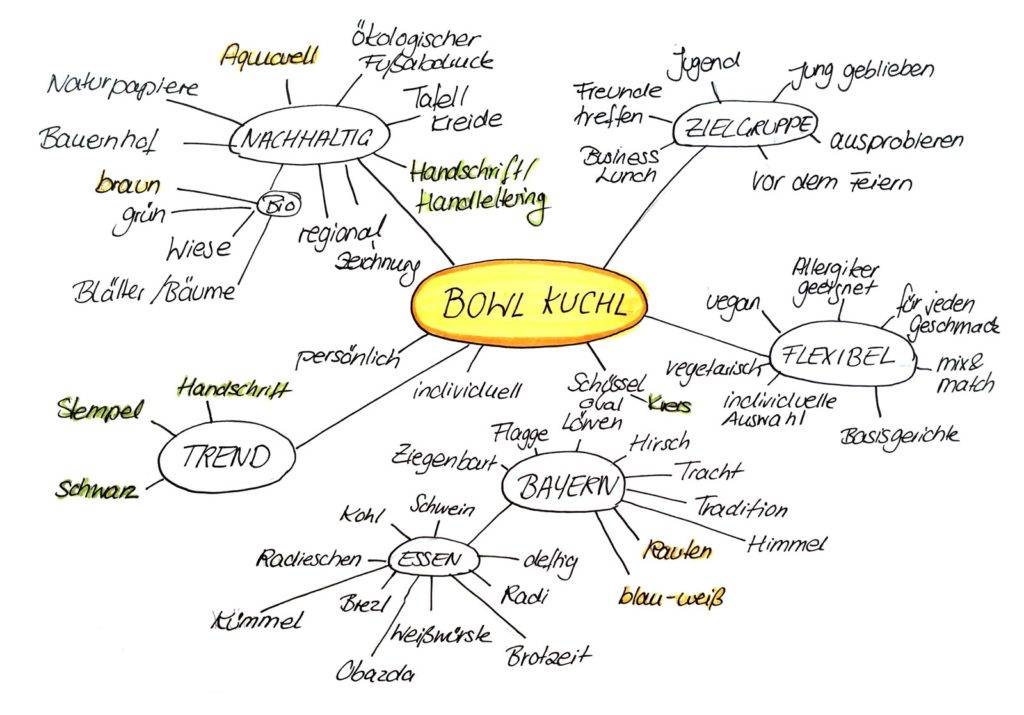 Aquarell
ökologischer
Fußabdruck
Naturpapiere
Tafel/
Kreide
Bauernhof
NACHHALTIG
Handschrift/
Handlettering
braun
grün
BIO
Wiese
Blätter/Bäume
regional
Zeichnung
Jugend
Jung geblieben
Freunde
treffen
ZIELGRUPPE
ausprobieren
Business
Lunch
vor dem Feiern
BOWL KUCHL
Allergiker
geeignet
vegan
für jeden
Geschmack
FLEXIBEL
vegetarisch
mix&
match
individuelle
Auswahl
Basisgerichte
persönlich
individuell
Schüssel
oval
Kreis
Handschrift
Stempel
TREND
Schwarz
Löwen
Flagge
Hirsch
Ziegenbart
BAYERN
Tracht
Tradition
Himmel
Rauten
blau-weiß
Schwein
Kohl
Radieschen
ESSEN
deftig
Radi
Brezl
Kümmel
Weißwürste
Obazda
Brotzeit